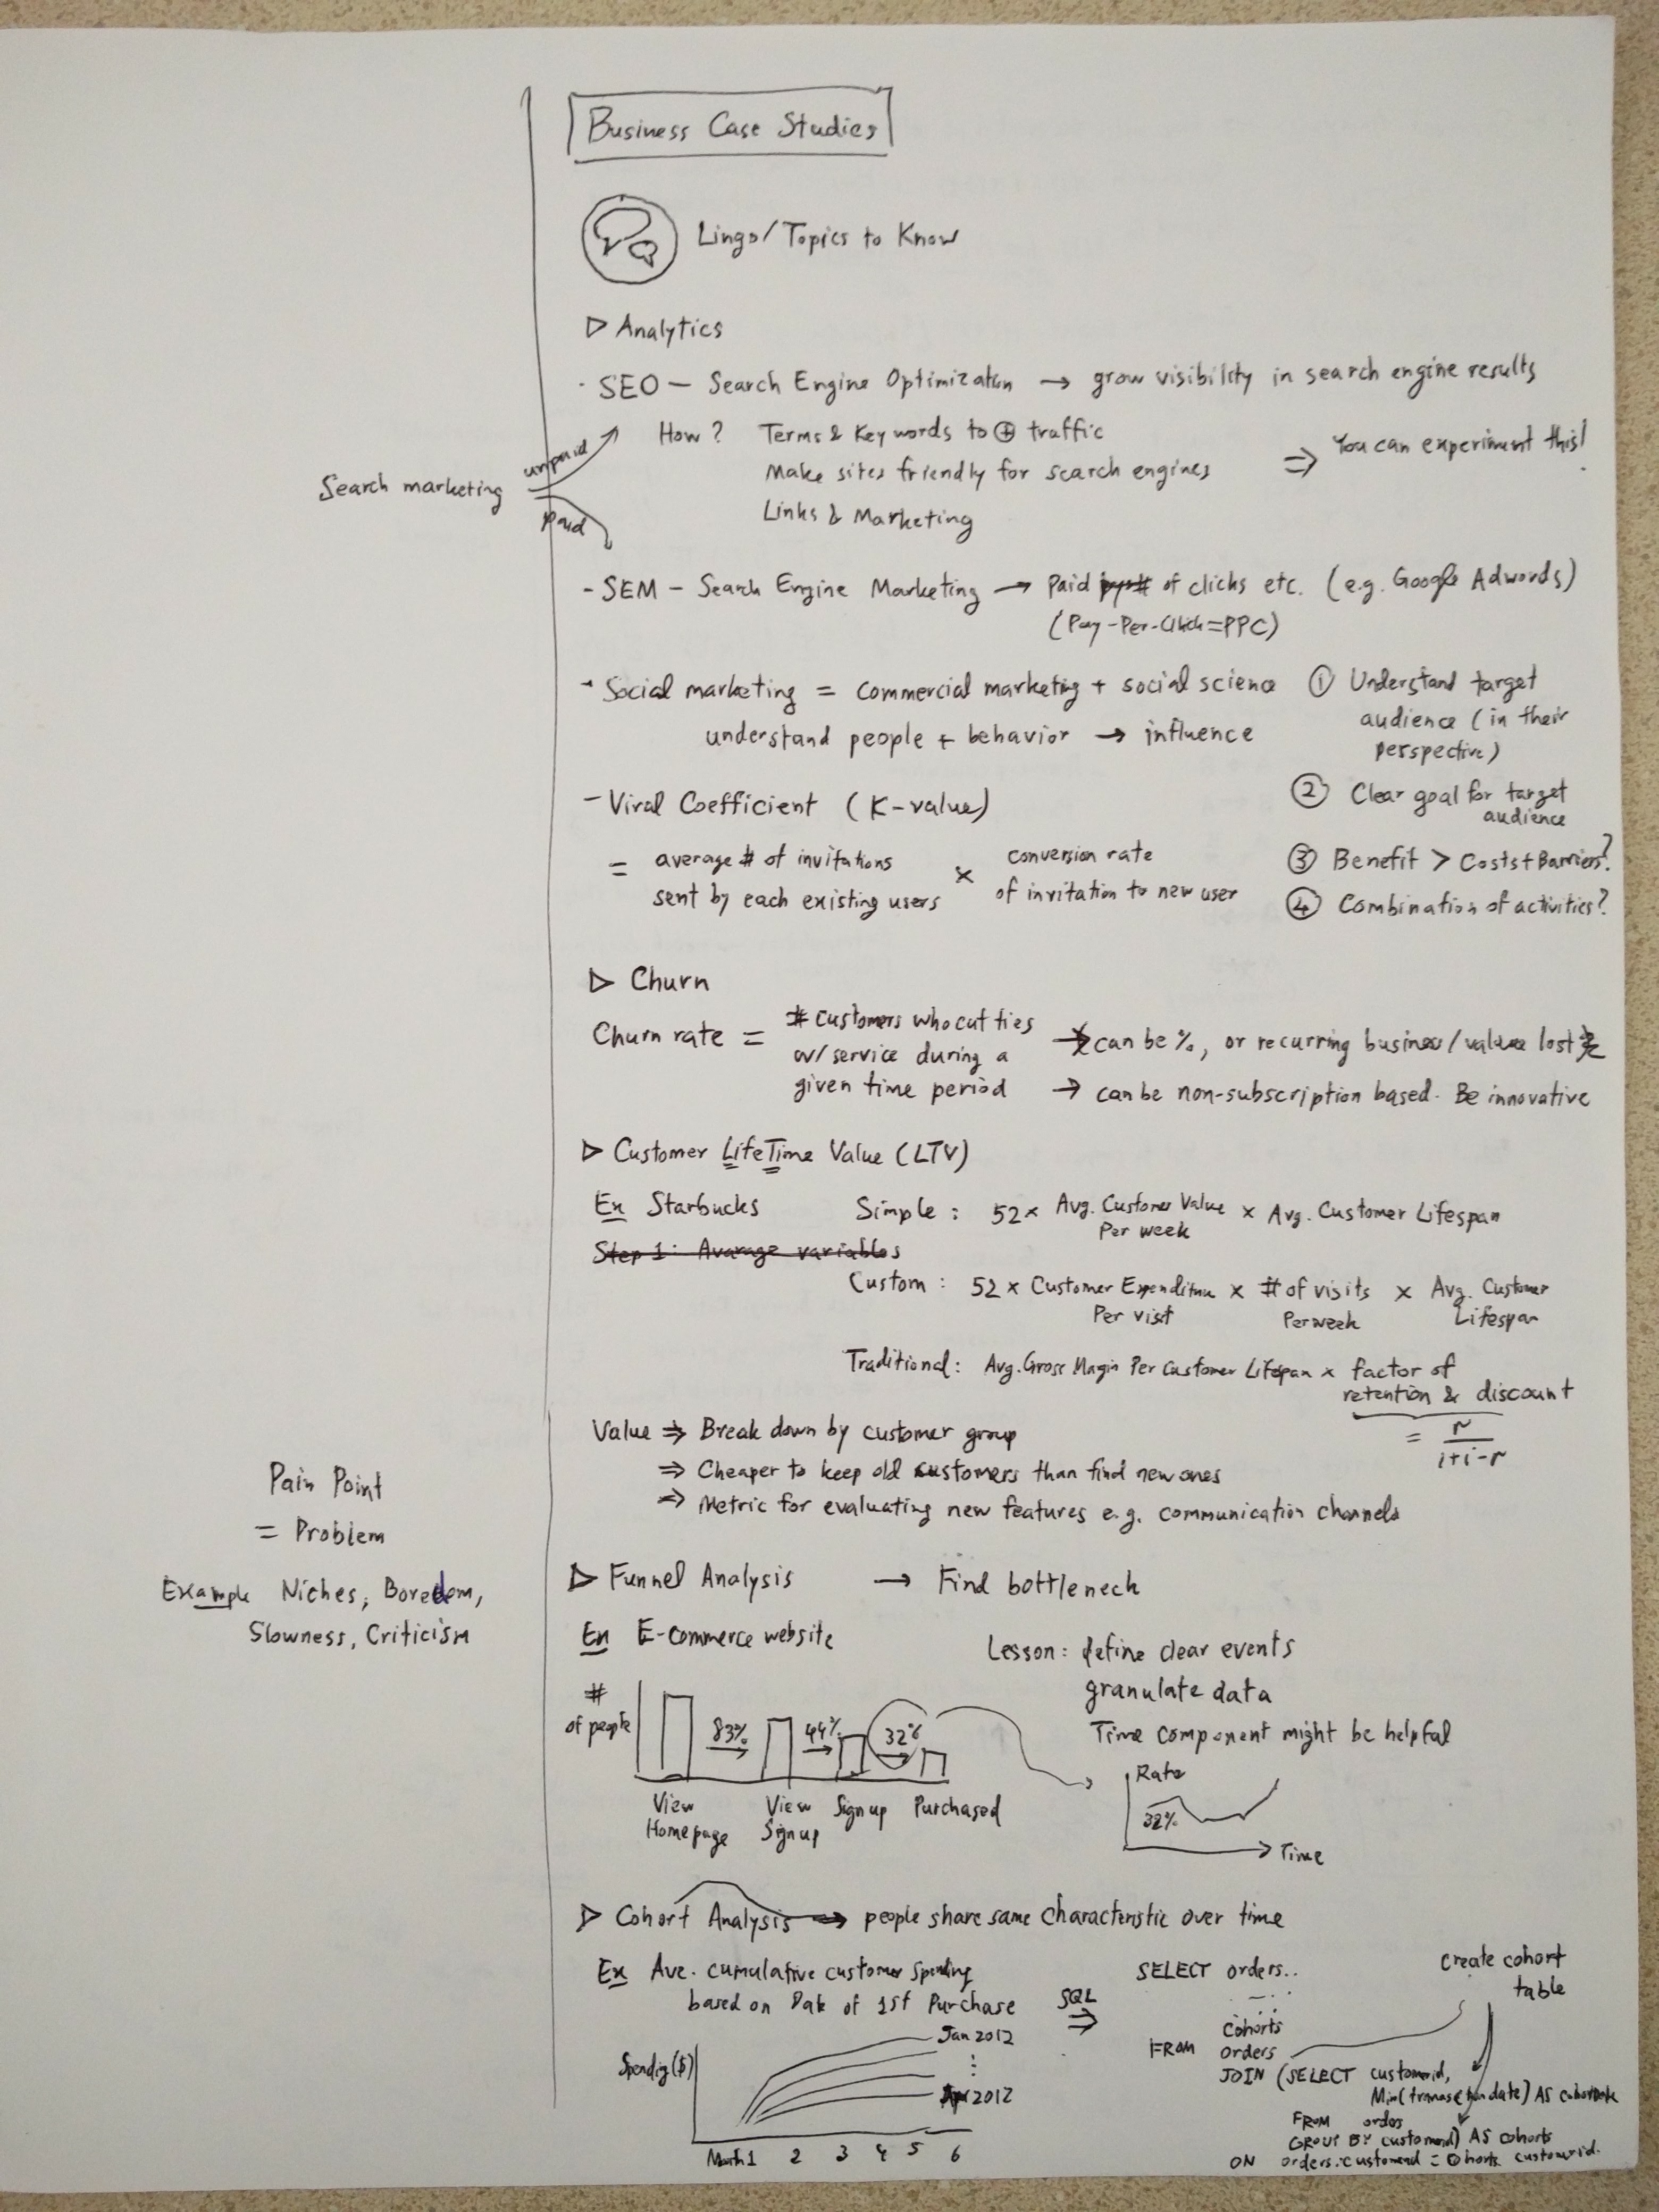 Business Case Studies
Lingo/Topics to Know
▷ Analytics
· SEO — Search Engine Optimization → grow visibility in search engine results
How? Terms & Keywords to ⊕ traffic
Make sites friendly for search engines
Links & Marketing
⇒ You can experiment this!
Search marketing
unpaid
paid
- SEM – Search Engine Marketing → Paid of clicks etc. (e.g. Google Adwords)
(Pay-Per-Click=PPC)
- Social marketing = commercial marketing + social science
understand people + behavior → influence
① Understand target
audience (in their
perspective)
② Clear goal for target
audience
③ Benefit > Costs+Barriers?
④ Combination of activities?
- Viral Coefficient (K-value)
= average # of invitations
sent by each existing users
× conversion rate
of invitation to new user
▷ Churn
Churn rate = # customers who cut ties
w/ service during a
given time period
→ can be %, or recurring business/value lost
→ can be non-subscription based. Be innovative
▷ Customer LifeTime Value (LTV)
Ex Starbucks
Simple: 52 × Avg. Customer Value
Per week
× Avg. Customer Lifespan
Step 1: Avarage variables
Custom: 52 × Customer Expenditure × # of visits × Avg. Customer
Per visit Per week Lifespan
Traditional: Avg. Gross Margin Per Customer Lifespan × factor of
retention & discount
= r
i+i-r
Value ⇒ Break down by customer group
⇒ Cheaper to keep old customers than find new ones
⇒ Metric for evaluating new features e.g. communication channels
Pain Point
= Problem
Example Niches, Boredom,
Slowness, Criticism
▷ Funnel Analysis → Find bottleneck
Ex E-commerce website
Lesson: define clear events
granulate data
Time component might be helpful
#
of people
83% 44% 32%
View
Homepage
View
Signup
Signup
Purchased
Rate
32%
Time
▷ Cohort Analysis → people share same characteristic over time
Ex Ave. cumulative customer spending
based on Date of 1st Purchase
Spending ($)
Jan 2012
Apr 2012
Month 1 2 3 4 5 6
SQL
⇒
SELECT orders..
cohorts
FROM orders
JOIN (SELECT customerid,
Min(transactiondate) AS cohortdate
FROM orders
GROUP BY customerid) AS cohorts
ON orders.customerid = cohorts.customerid.
create cohort
table